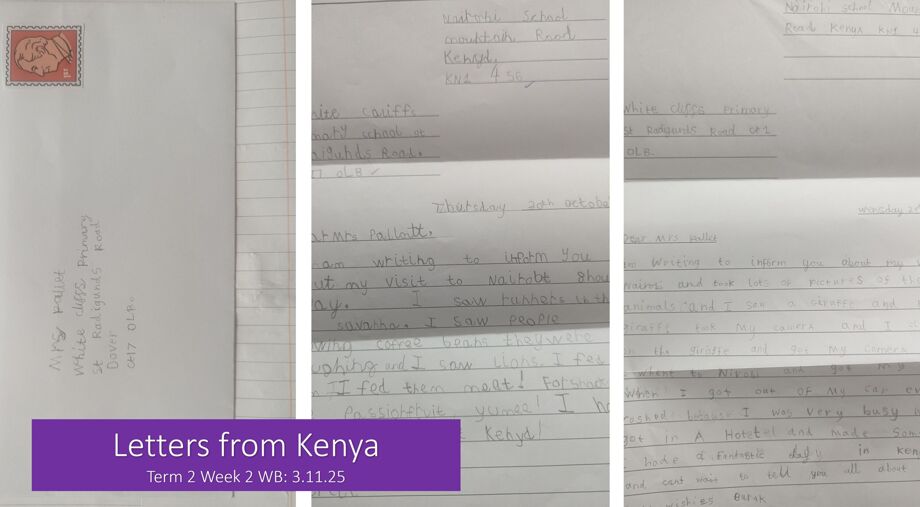 Mrs Pallet
White Cliffs Primary
St Radigunds Road
Dover
Nairobi School
Road
Kenya,
KN1 4 56
hite Caniffs
mary school st
aigunds Road.
OLB
Thursday 20th October
ar Mrs Pallott,
am writing to inform you
ut my visit to Nairobi
ay. I saw runners in th
savanna. I saw people
wing coffee beans they were
ughing and I saw lions. I fed
I fed them meat! For
Passionfruit, yumee! I ha
Kenya!
Nairobi school
Road Kenya KN1 4
White Cliffs Primary
St Radigunds Road CH1
OLB.
Dear Mrs Pallet
am writing to inform you about my
and took lots of pictures of th
animals and I see a giraffe and
giraffe took my camera and I
on the giraffe and got my camera
and got my
When I got out of my car
because I was very busy
got in A Hotetel and made Som
hade a fantastic day in Ken
and cant wait to tell you all about
wishies
Letters from Kenya
Term 2 Week 2 WB: 3.11.25